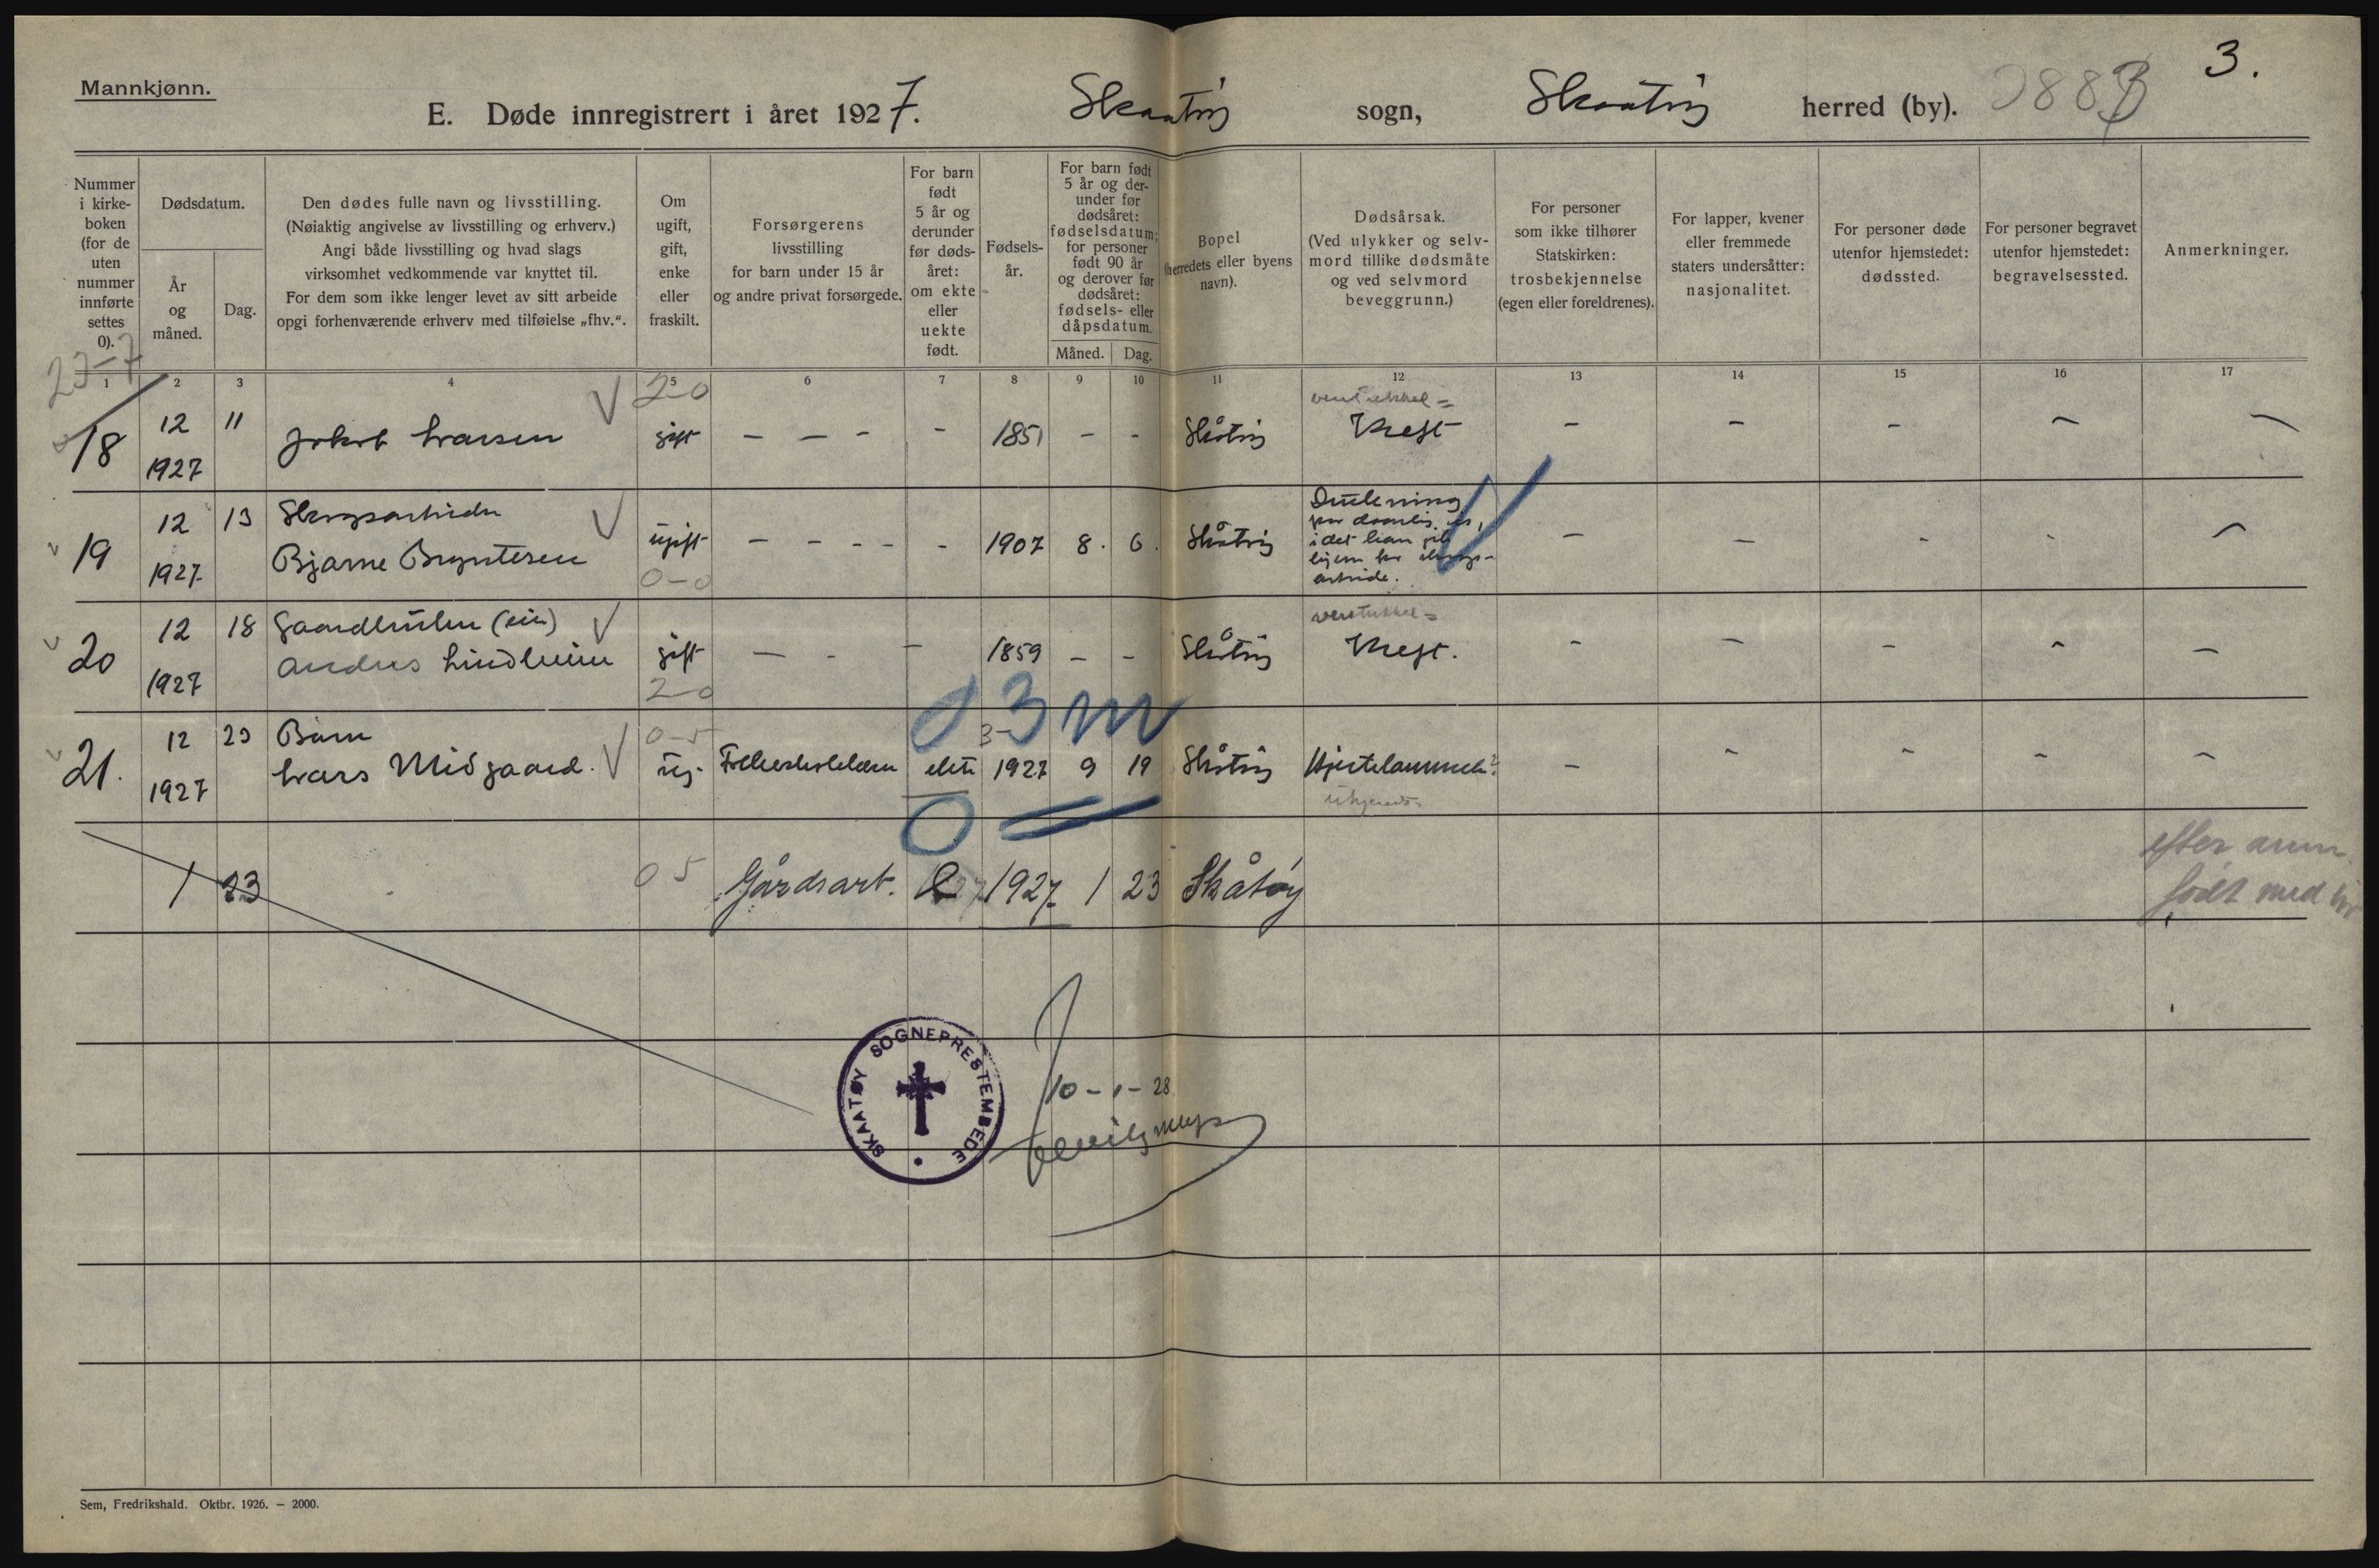 Mannkjønn.
3.
E. Døde innregistrert i året 1927. Skaatøy sogn, Skaatøy herred (by).
Nummer i kirke-boken (for de uten nummer innførte settes 0).
Dødsdatum.
År og måned.
Dag.
Den dødes fulle navn og livsstilling.
(Nøiaktig angivelse av livsstilling og erhverv.)
Angi både livsstilling og hvad slags
virksomhet vedkommende var knyttet til.
For dem som ikke lenger levet av sitt arbeide
opgi forhenværende erhverv med tilføielse „fhv.“.
Om ugift, gift, enke eller fraskilt.
Forsørgerens
livsstilling
for barn under 15 år
og andre privat forsørgede.
For barn født 5 år og derunder før døds-året: om ekte eller uekte født.
Fødsels-år.
For barn født 5 år og der-under før dødsåret: fødselsdatum; for personer født 90 år og derover før dødsåret: fødsels- eller dåpsdatum.
Måned.
Dag.
Bopel
(herredets eller byens
navn).
Dødsårsak.
(Ved ulykker og selv-
mord tillike dødsmåte
og ved selvmord
beveggrunn.)
For personer
som ikke tilhører
Statskirken:
trosbekjennelse
(egen eller foreldrenes).
For lapper, kvener
eller fremmede
staters undersåtter:
nasjonalitet.
For personer døde
utenfor hjemstedet:
dødssted.
For personer begravet
utenfor hjemstedet:
begravelsessted.
Anmerkninger.
23-7
1 2 3 4 5 6 7 8 9 10 11 12 13 14 15 16 17
2-0
18 12 1927 11 Jakob Larsen gift — — - - 1851 - - Skåtøy Kreft - - - - -
19 12 1927 13 Skogsarbeider
Bjarne Bryntesen ugift — - - - - 1907 8. 6. Skåtøy Drukning
paa daarlig is,
i det han gik
hjem fra skogs-
arbeide. - - - - -
0-0
20 12 1927 18 Gaardbruker (eie)
Anders Lindheim gift — - - 1859 - - Skåtøy Kreft. - - - - -
2-0
03m
21. 12 1927 23 Barn
Lars Midgaard. ug. ekte 1927 9 19 Skåtøy Hjertelammelse? - - - - -
0-5
ukjendt
0
1 23 05 Gårdsarb. 1927 1 23 Skåtøy
efter anm.
født med liv
SKAATØY SOGNEPRESTEMBEDE
10-1-28
Sem, Fredrikshald. Oktbr. 1926. — 2000.